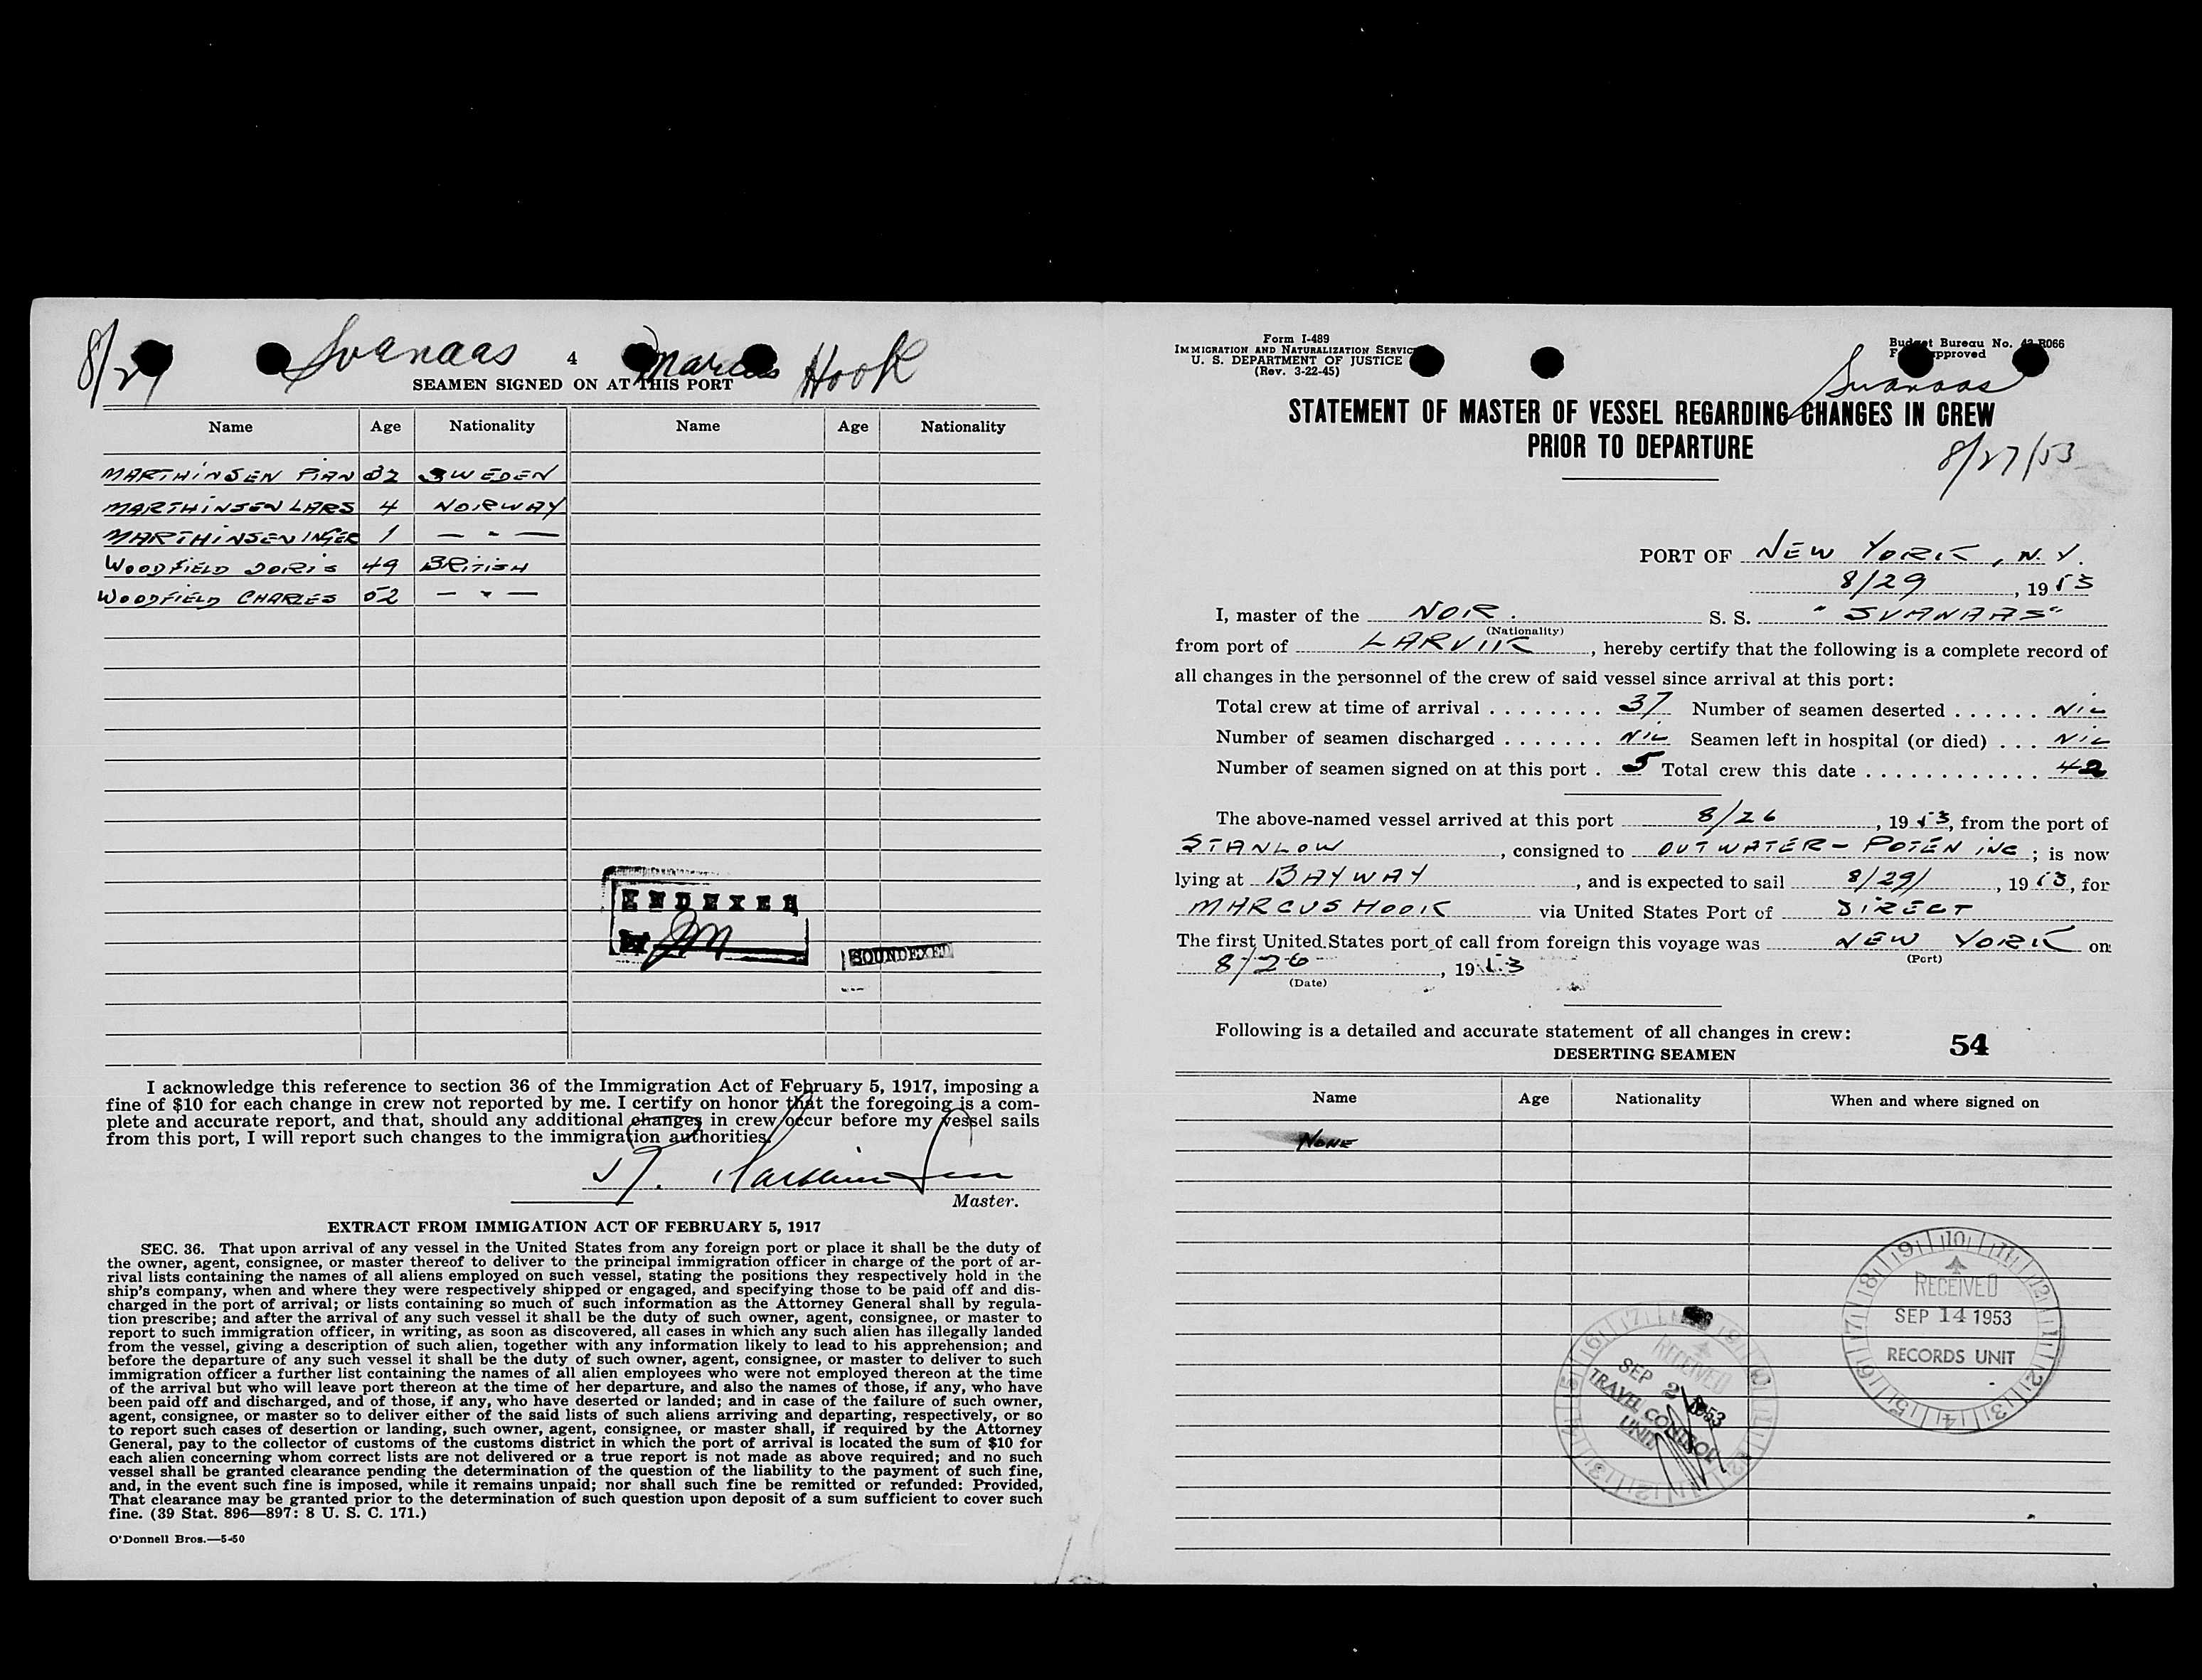 8/29 Svanaas 4 Marcus Hook
SEAMEN SIGNED ON AT THIS PORT
Name Age Nationality Name Age Nationality
MARTHINSEN 32 SWEDEN
MARTHINSEN LARS 4 NORWAY
MARTHINSEN INGER 1 — " —
WOODFIELD DORIS 49 BRITISH
WOODFIELD CHARLES 52 — " —
INDEXED
BY
SOUNDEXED
I acknowledge this reference to section 36 of the Immigration Act of February 5, 1917, imposing a
fine of $10 for each change in crew not reported by me. I certify on honor that the foregoing is a com-
plete and accurate report, and that, should any additional changes in crew occur before my vessel sails
from this port, I will report such changes to the immigration authorities.
Master.
EXTRACT FROM IMMIGATION ACT OF FEBRUARY 5, 1917
SEC. 36. That upon arrival of any vessel in the United States from any foreign port or place it shall be the duty of
the owner, agent, consignee, or master thereof to deliver to the principal immigration officer in charge of the port of ar-
rival lists containing the names of all aliens employed on such vessel, stating the positions they respectively hold in the
ship's company, when and where they were respectively shipped or engaged, and specifying those to be paid off and dis-
charged in the port of arrival; or lists containing so much of such information as the Attorney General shall by regula-
tion prescribe; and after the arrival of any such vessel it shall be the duty of such owner, agent, consignee, or master to
report to such immigration officer, in writing, as soon as discovered, all cases in which any such alien has illegally landed
from the vessel, giving a description of such alien, together with any information likely to lead to his apprehension; and
before the departure of any such vessel it shall be the duty of such owner, agent, consignee, or master to deliver to such
immigration officer a further list containing the names of all alien employees who were not employed thereon at the time
of the arrival but who will leave port thereon at the time of her departure, and also the names of those, if any, who have
been paid off and discharged, and of those, if any, who have deserted or landed; and in case of the failure of such owner,
agent, consignee, or master so to deliver either of the said lists of such aliens arriving and departing, respectively, or so
to report such cases of desertion or landing, such owner, agent, consignee, or master shall, if required by the Attorney
General, pay to the collector of customs of the customs district in which the port of arrival is located the sum of $10 for
each alien concerning whom correct lists are not delivered or a true report is not made as above required; and no such
vessel shall be granted clearance pending the determination of the question of the liability to the payment of such fine,
and, in the event such fine is imposed, while it remains unpaid; nor shall such fine be remitted or refunded: Provided,
That clearance may be granted prior to the determination of such question upon deposit of a sum sufficient to cover such
fine. (39 Stat. 896—897: 8 U. S. C. 171.)
O'Donnell Bros.—5-50
Form I-489
IMMIGRATION AND NATURALIZATION SERVICE
U. S. DEPARTMENT OF JUSTICE
(Rev. 3-22-45)
Budget Bureau No. 43-R066
Approved
Svanaas
STATEMENT OF MASTER OF VESSEL REGARDING CHANGES IN CREW
PRIOR TO DEPARTURE
8/27/53
PORT OF NEW YORK, N. Y.
8/29, 1953
I, master of the NOR. S. S. "SVANAAS"
(Nationality)
from port of LARVIK, hereby certify that the following is a complete record of
all changes in the personnel of the crew of said vessel since arrival at this port:
Total crew at time of arrival . . . . . . . . 37 Number of seamen deserted . . . . . . NIL
Number of seamen discharged . . . . . . . NIL Seamen left in hospital (or died) . . . NIL
Number of seamen signed on at this port . 5 Total crew this date . . . . . . . . . . . . . 42
The above-named vessel arrived at this port 8/26, 1953, from the port of
STANLOW, consigned to OUTWATER-POTEN INC; is now
lying at BAYWAY, and is expected to sail 8/29/, 1953, for
MARCUS HOOK via United States Port of DIRECT
The first United States port of call from foreign this voyage was NEW YORK on
(Port)
8/26, 1953
(Date)
Following is a detailed and accurate statement of all changes in crew:
54
DESERTING SEAMEN
Name Age Nationality When and where signed on
NONE
RECEIVED
SEP 14 1953
RECORDS UNIT
RECEIVED
SEP 2 1953
TRAVEL CONTROL
UNIT